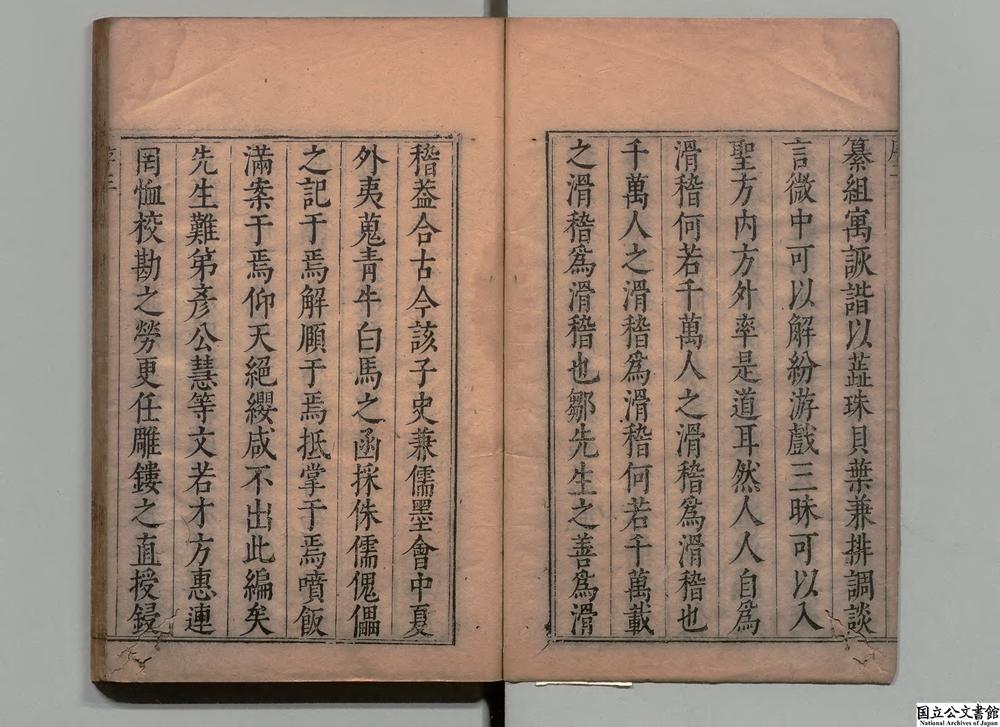 纂組寓詼諧以蘂珠貝葉兼排調談
言微中可以解紛游戲三昧可以入
聖方内方外率是道耳然人人自為
滑稽何若千萬人之滑稽為滑稽也
千萬人之滑稽為滑稽何若千萬載
之滑稽為滑稽也鄒先生之善為滑
稽葢合古今該子史兼儒墨會中夏
外夷蒐青牛白馬之函採侏儒傀儡
之記于焉解頤于焉抵掌于焉噴飯
滿案于焉仰天絕纓咸不出此編矣
先生難弟彥公慧等文若才方惠連
罔恤校勘之勞更任雕鏤之直授鋟
序三
国立公文書館
National Archives of Japan